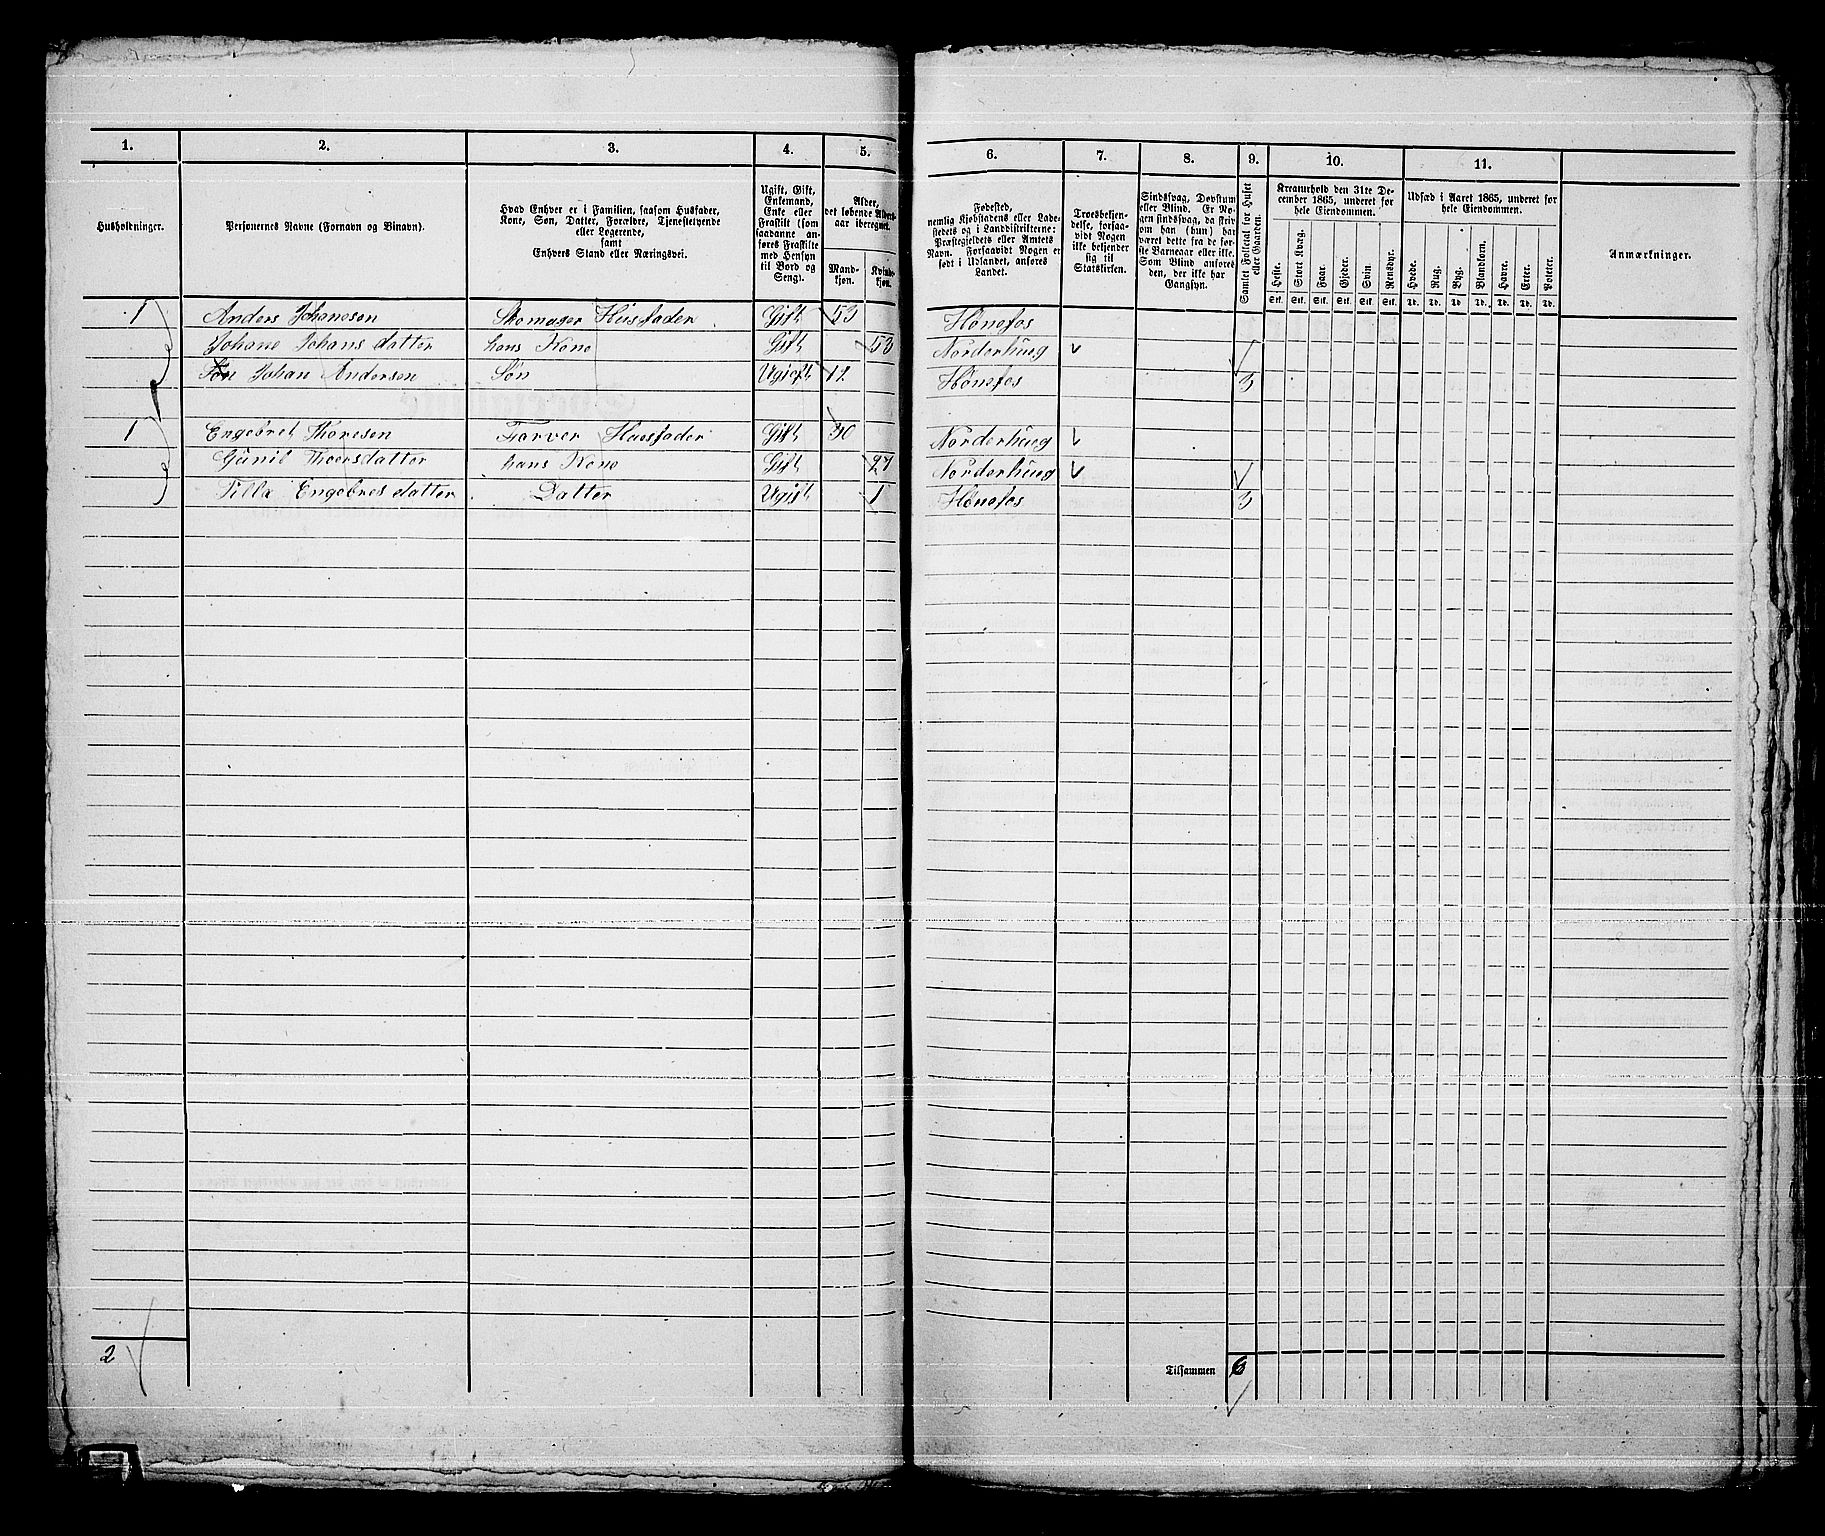 1. 2. 3. 4. 5. 6. 7. 8. 9. 10. 11.
Husholdninger.
Personernes Navne (Fornavn og Binavn).
Hvad Enhver er i Familien, saasom Husfader,
Kone, Søn, Datter, Forældre, Tjenestetyende
eller Logerende,
samt
Enhvers Stand eller Næringsvei.
Ugift, Gift,
Enkemand,
Enke eller
Fraskilt (som
saadanne an-
føres Fraskilte
med Hensyn
til Bord og
Seng).
Alder,
det løbende Alders-
aar iberegnet.
Mand-
kjøn.
Kvinde-
kjøn.
Fødested,
nemlig Kjøbstadens eller Lade-
stedets og i Landdistrikterne:
Præstegjeldets eller Amtets
Navn. Forsaavidt Nogen er
født i Udlandet, anføres
Landet.
Troesbekjen-
delse, forsaa-
vidt Nogen
ikke bekjender
sig til
Statskirken.
Sindssvag, Døvstum
eller Blind. Er No-
gen sindssvag, da skriv
om han (hun) har
været dette fra de før-
ste Barneaar eller ikke.
Som Blind anføres
den, der ikke har
Gangsyn.
Samlet Folketal for Huset
eller Gaarden.
Kreaturhold den 31te De-
cember 1865, underet for
hele Eiendommen.
Heste. Stort Kvæg. Faar. Gjeder. Svin Rensdyr.
Stk. Stk. Stk. Stk. Stk. Stk.
Udsæd i Aaret 1865, underet for
hele Eiendommen.
Hvede. Rug. Byg. Blandkorn. Havre. Erter. Poteter.
Td. Td. Td. Td. Td. Td. Td.
Anmærkninger.
1 Anders Johanesen Skomager Husfader Gift 53 Hønefos
Johane Johans datter hans Kone Gift 53 Norderhung
Johan Andersen Søn Ugift 12 Hønefos 3
1 Engebret Thoresen Farver Husfader Gift 30 Norderhung
Gunil Thoersdatter hans Kone Gift 27 Norderhung
Engebres datter Datter Ugift 1 Hønefos 3
2
Tilsammen 6